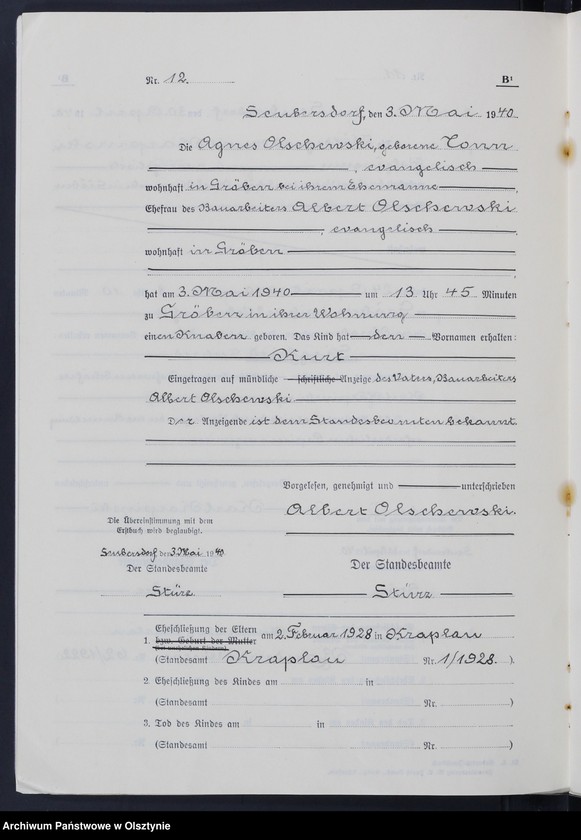 Nr. 12. B¹
Seubersdorf, den 3. Mai 1940
Die Agnes Olschewski, geborene Tonn
, evangelisch
wohnhaft in Gröben bei ihrem Ehemanne,
Ehefrau des Bauarbeiters Albert Olschewski
, evangelisch,
wohnhaft in Gröben
hat am 3. Mai 1940 um 13 Uhr 45 Minuten
zu Gröben in ihrer Wohnung
einen Knaben geboren. Das Kind hat den Vornamen erhalten:
Kurt
Eingetragen auf mündliche schriftliche Anzeige des Vaters, Bauarbeiters
Albert Olschewski
Der Anzeigende ist dem Standesbeamten bekannt.
Vorgelesen, genehmigt und unterschrieben
Albert Olschewski.
Die Übereinstimmung mit dem
Erstbuch wird beglaubigt.
Seubersdorf den 3. Mai 1940
Der Standesbeamte
Der Standesbeamte
1. Eheschließung der Eltern am 2. Februar 1928 in Kraplau
bzw. Geburt der Mutter
(Standesamt Kraplau Nr. 1/1928.)
2. Eheschließung des Kindes am in
(Standesamt Nr. )
3. Tod des Kindes am in
(Standesamt Nr. )
Archiwum Państwowe w Olsztynie